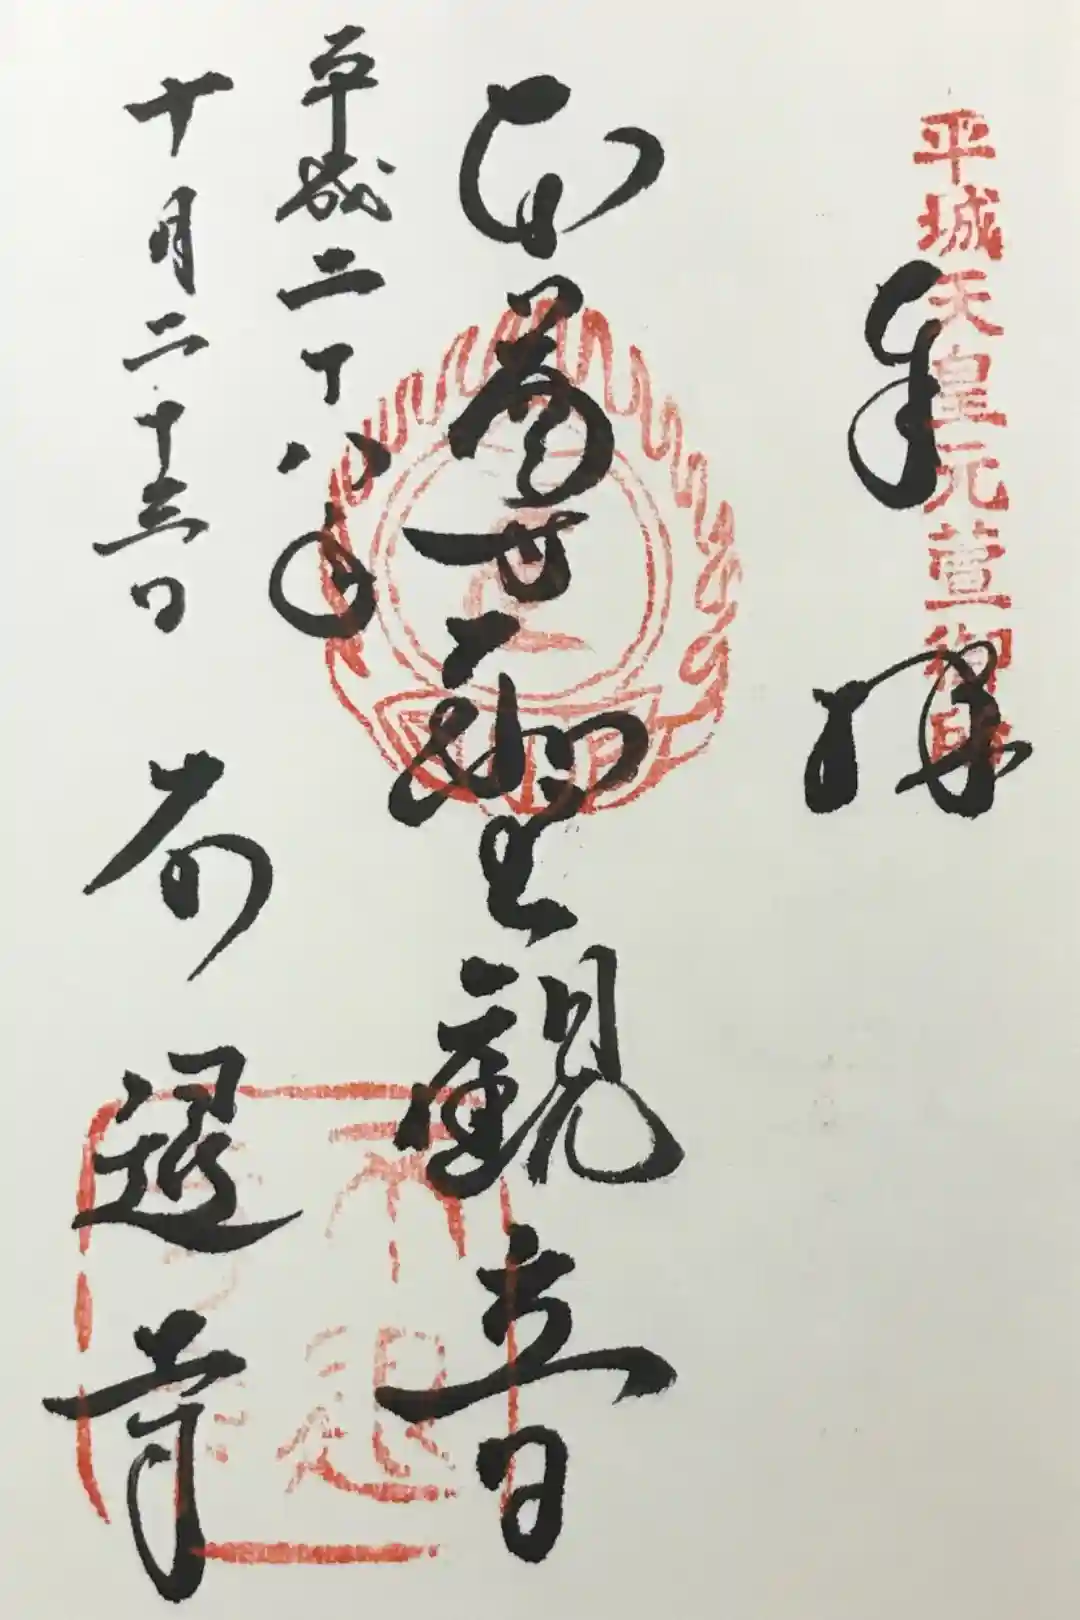 平城天皇元萱御所
奉拝
世聖観音
平成二十八年
十月二十三日
不退寺
不退